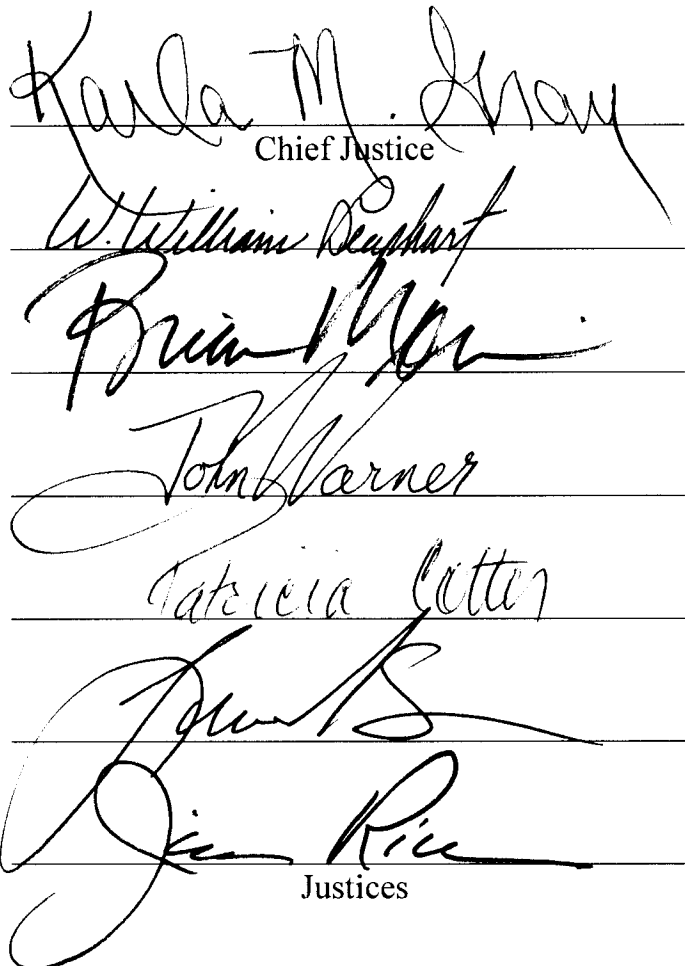 Karla M. Gray
Chief Justice
W. William Leaphart
Brian Morris
John Warner
Patricia Cotter
Jim Rice
Justices